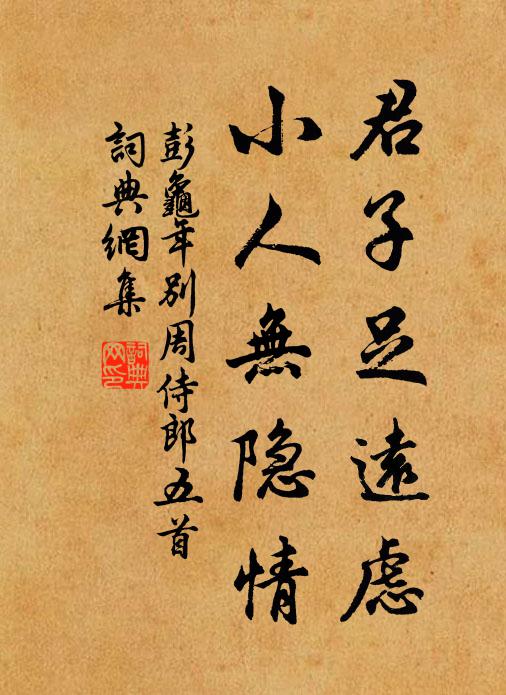 君子足遠慮
小人無隐情
彭龜年别周侍郎五首
詞典網集
詞典網印